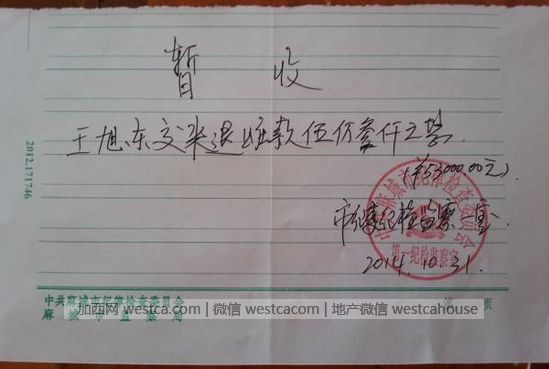 暂 收
王旭东交来退赃款伍万叁仟元整.
(¥53000.00元).
市纪委纪检监察一室
中共麻城市纪律检查委员会
第一纪检监察室
2014.10.31.
2012.171746
中共麻城市纪律检查委员会
麻城市监察局
第 页
加西网 westca.com | 微信 westcacom | 地产微信 westcahouse